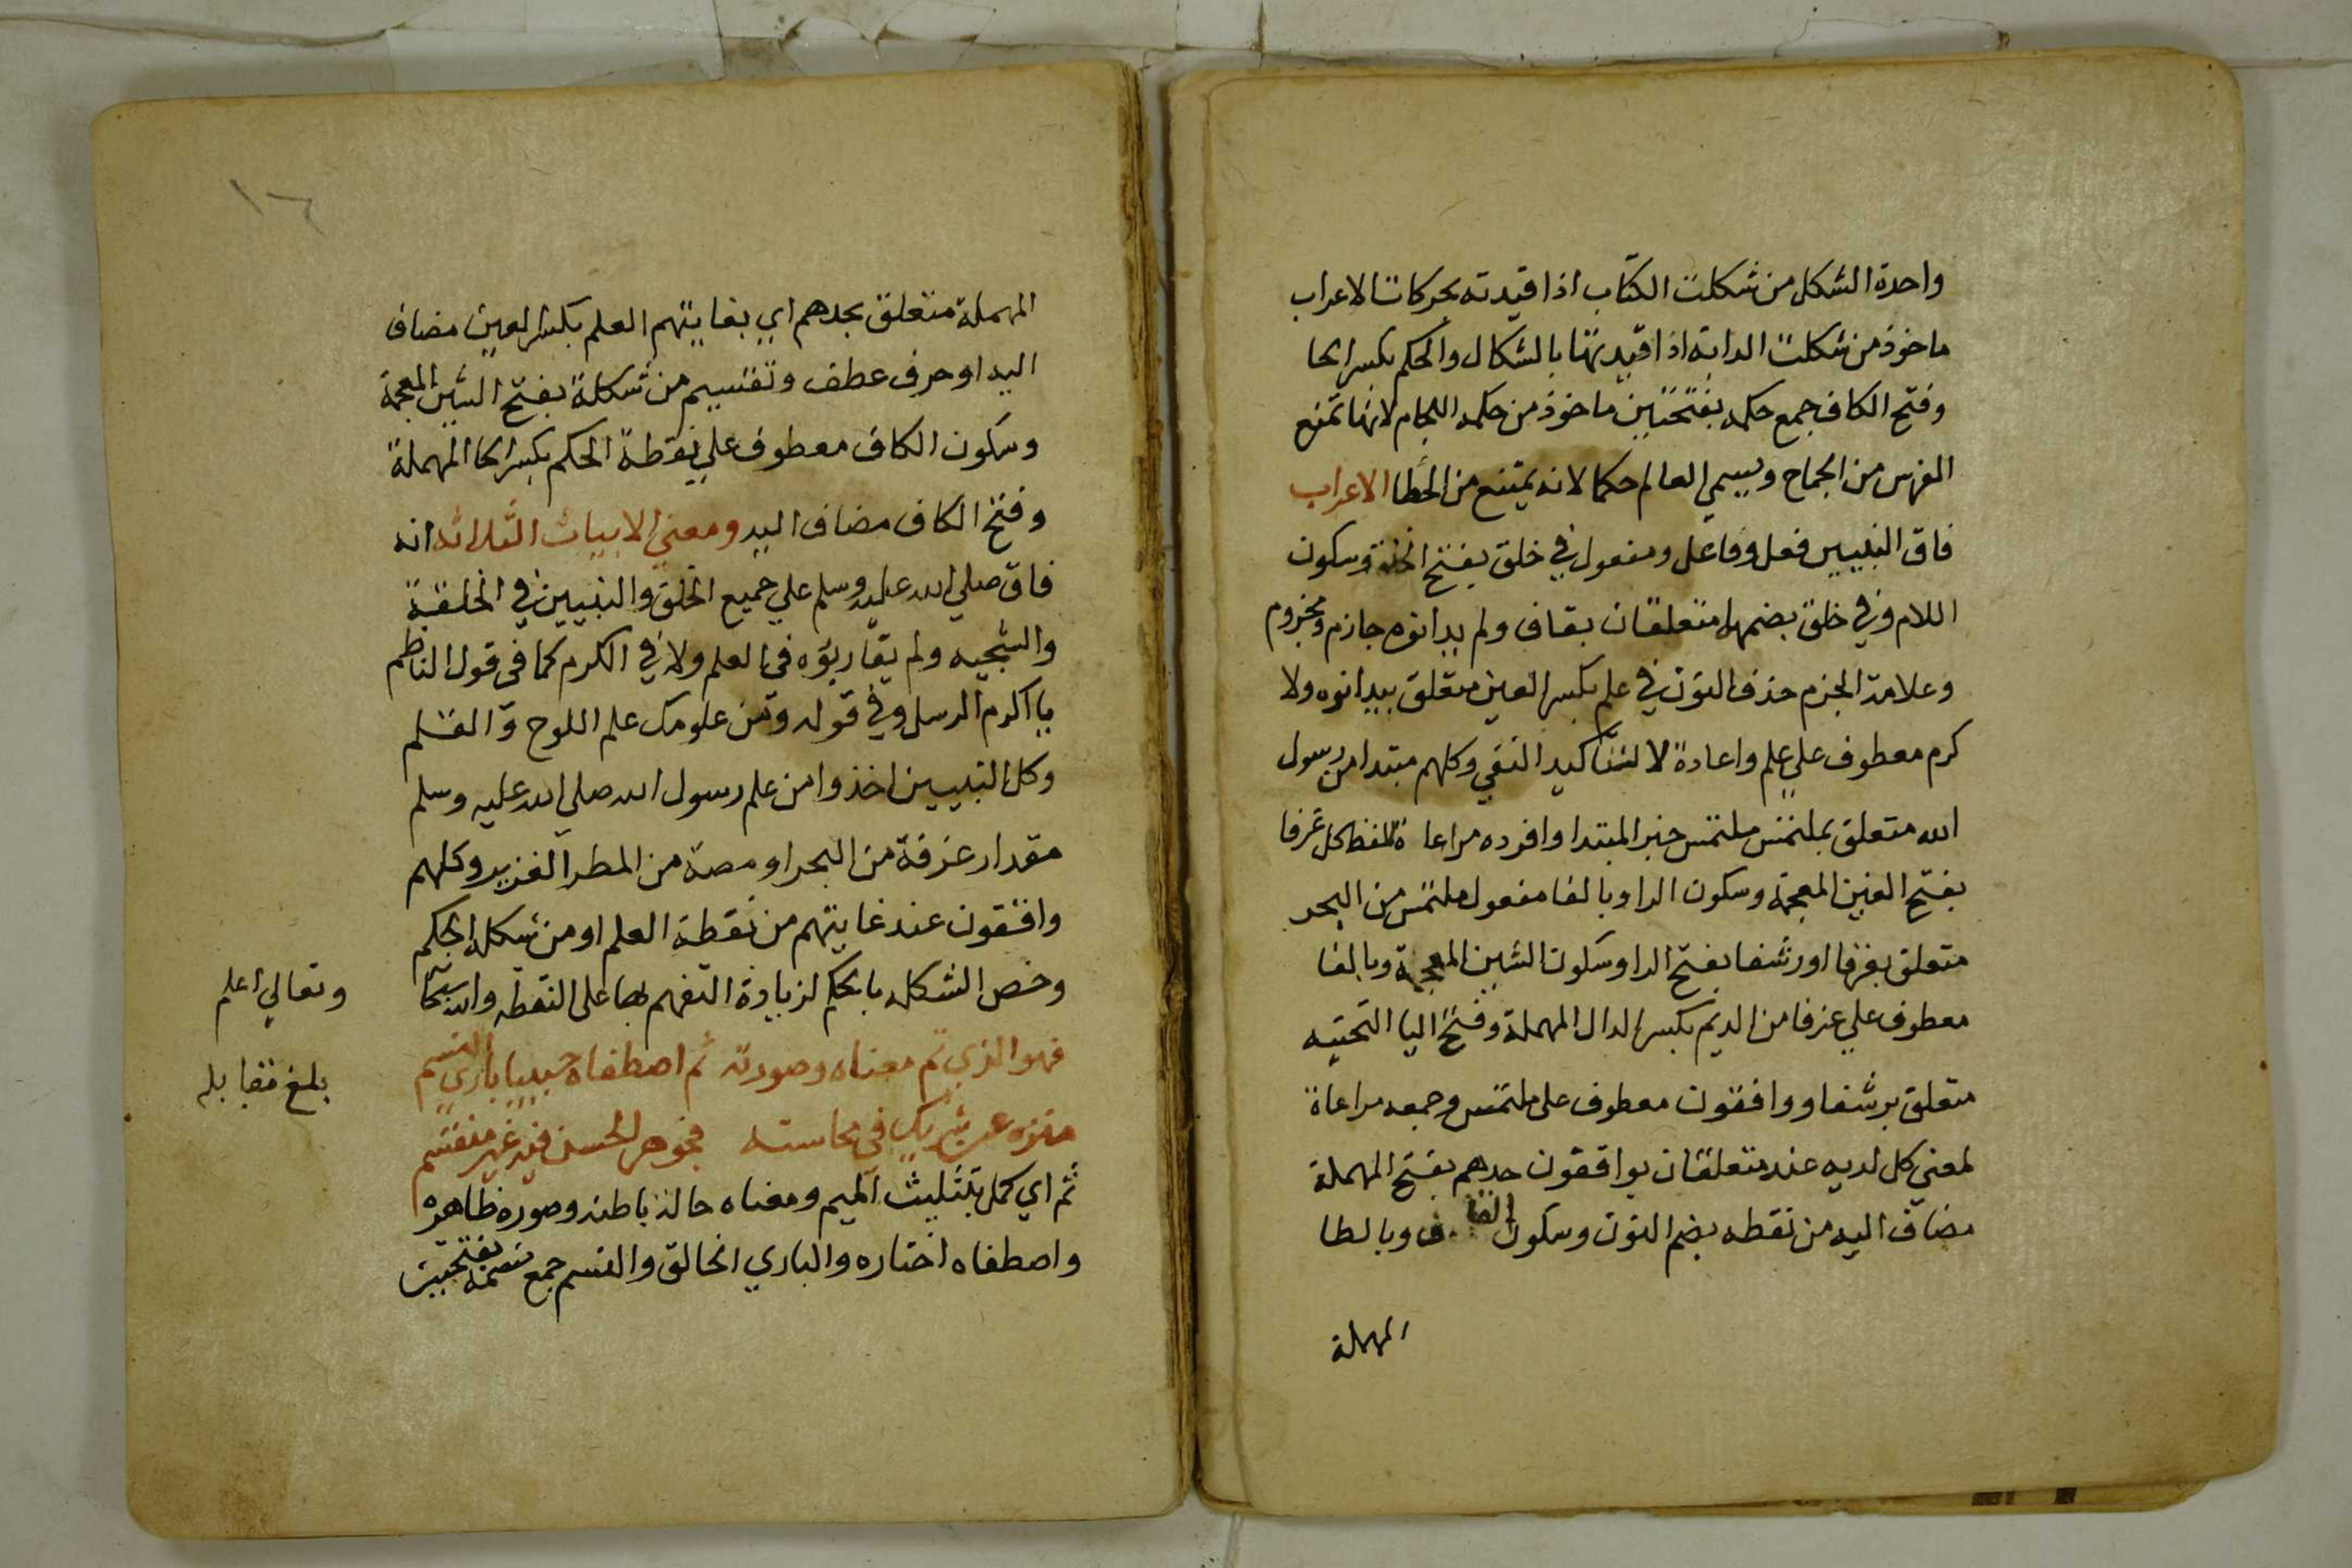 واحدة الشكل من شكلت الكتاب اذا قيدته بحركات الاعراب
ماخوذ من شكلت الدابة اذا قيدتها بالشكال والحكم بكسر الحا
وفتح الكاف جمع حكمه بفتحتين ماخوذ من حكمه اللجام لانها تمنع
الفرس من الجماح ويسمي العالم حكما لانه يمتنع من الخطا الاعراب
فاق النبيين فعل وفاعل ومفعول في خلق بفتح الخا وسكون
اللام وفي خلق بضمهما متعلقان بفاق ولم يدانوه جازم ومجزوم
وعلامة الجزم حذف النون في علم بكسر العين متعلق بيدانوه ولا
كرم معطوف علي علم واعادة لا لتتاكيد النفي وكلهم مبتدا من رسول
الله متعلق بملتمس ملتمس خبر المبتدا وافرده مراعاة للفظ كل غرفا
بفتح الغين المعجمة وسكون الرا وبالفا مفعول ملتمس من البحر
متعلق بغرفا او رشفا بفتح الرا وسكون الشين المعجمة وبالفا
معطوف علي غرفا من الديم بكسر الدال المهملة وفتح اليا التحتيه
متعلق برشفا وواقفون معطوف على ملتمس وجمعه مراعاة
لمعني كل لديه عند متعلقان بواقفون حدهم بفتح المهملة
مضاف اليه من نقطه بضم النون وسكون القاف وبالطا
المهملة
١٦
المهملة متعلق بحدهم اي بغايتهم العلم بكسر العين مضاف
اليه او حرف عطف وتقسيم من شكلة بفتح الشين المعجمة
وسكون الكاف معطوف علي نقطة الحكم بكسر الحا المهملة
وفتح الكاف مضاف اليه ومعني الابيات الثلاثه انه
فاق صلي الله عليه وسلم علي جميع الخلق والنبيين في الخلقة
والسجيه ولم يقاربوه في العلم ولا في الكرم كما في قول الناظم
يا اكرم الرسل وفي قوله ومن علومك علم اللوح والقلم
وكل النبيين اخذوا من علم رسول الله صلي الله عليه وسلم
مقدار غرفة من البحر او مصة من المطر الغزير وكلهم
واقفون عند غايتهم من نقطة العلم او من شكله الحكم
وخص الشكله بالحكم لزيادة التفهم بها على النقطه والله سبحا
وتعالي اعلم
فهو الذي تم معناه وصورته ثم اصطفاه حبيبا باري النسم
بلغ مقابله
منزه عن شريك في محاسنه فجوهر الحسن فيه غير منقسم
تم اي كمل بتثليث الميم ومعناه حاله باطنه وصوره ظاهره
واصطفاه اختاره والباري الخالق والنسم جمع نسمة بفتحتين